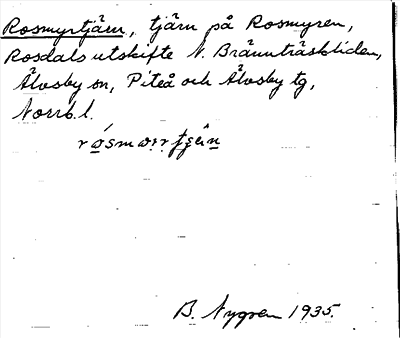 Rosmyrtjärn, tjärn på Rosmyren,
Rosdals utskifte N. Brännträskliden,
Älvsby sn, Piteå och Älvsby tg,
Norrb. l.
B. Nygren 1935.